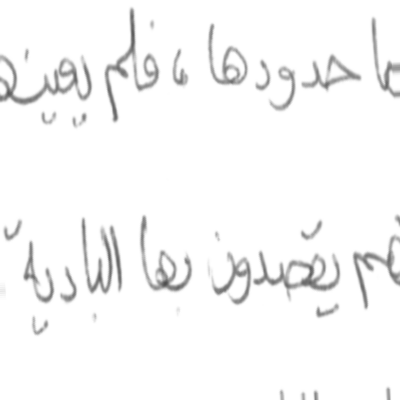 ما حدودها، فلم يعينها
فهم يقصدون بها البادية